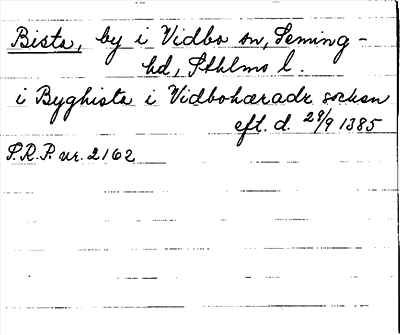 Bista, by i Vidbo sn, Seming-
hd, Sthlms l.
i Byghista i Vidbohæradz socken
eft. d. 29/9 1385
P.R.P. nr. 2162